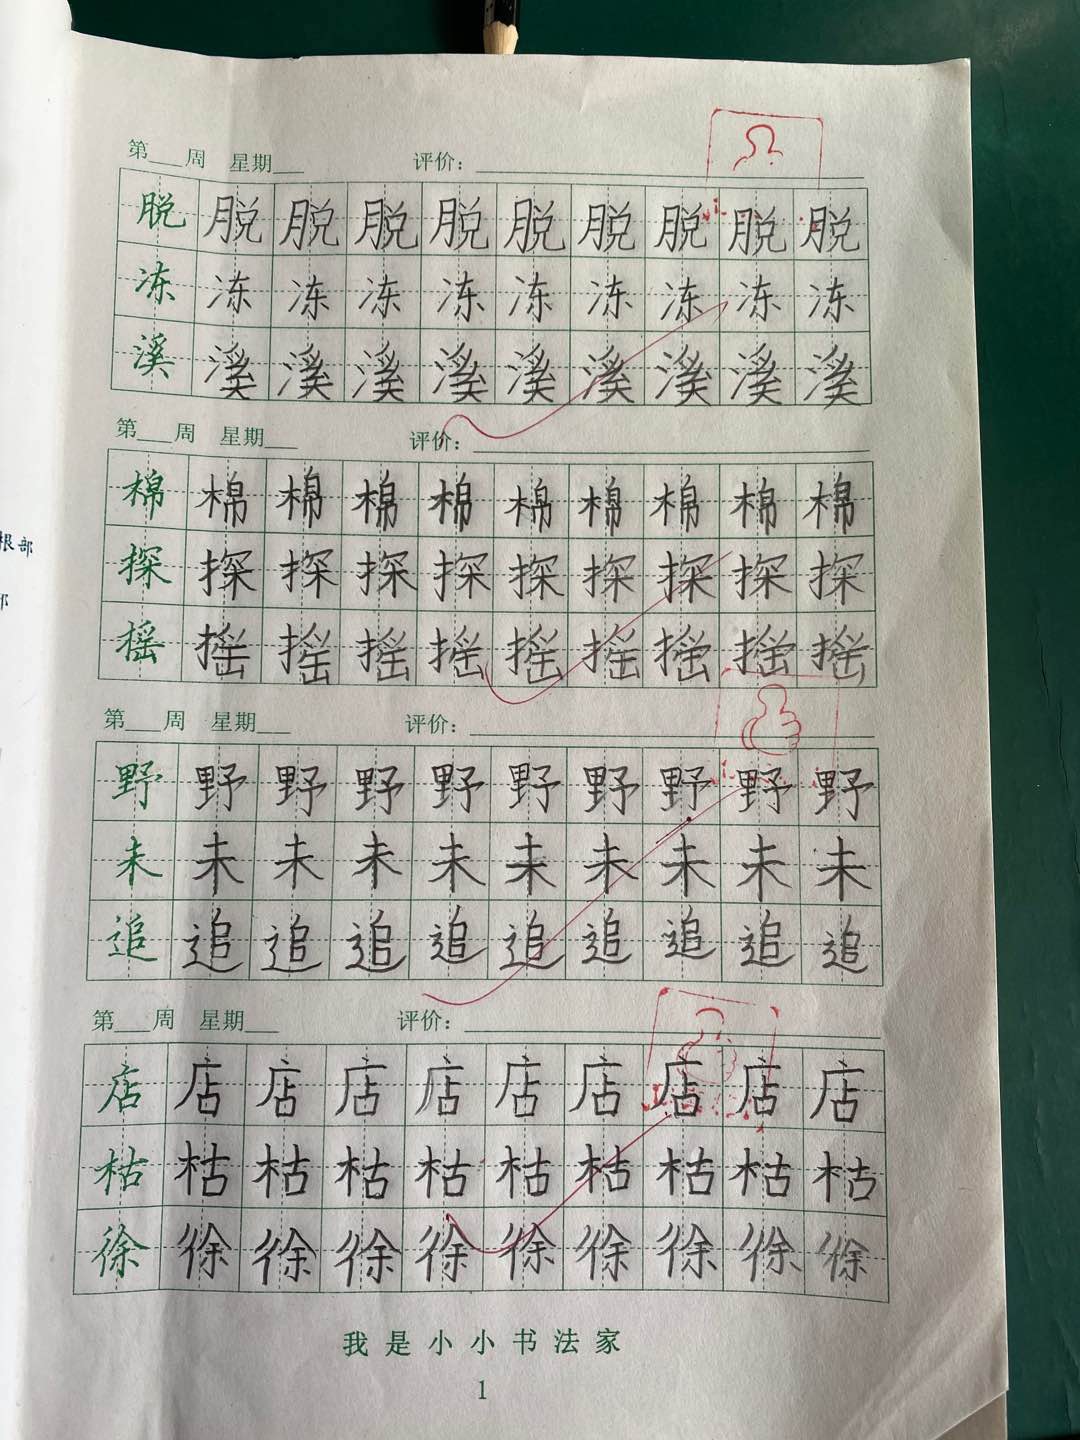 第___周 星期___ 评价：
脱 脱 脱 脱 脱 脱 脱 脱 脱 脱
冻 冻 冻 冻 冻 冻 冻 冻 冻 冻
溪 溪 溪 溪 溪 溪 溪 溪 溪 溪
第___周 星期___ 评价：
棉 棉 棉 棉 棉 棉 棉 棉 棉 棉
探 探 探 探 探 探 探 探 探 探
摇 摇 摇 摇 摇 摇 摇 摇 摇 摇
第___周 星期___ 评价：
野 野 野 野 野 野 野 野 野 野
未 未 未 未 未 未 未 未 未 未
追 追 追 追 追 追 追 追 追 追
第___周 星期___ 评价：
店 店 店 店 店 店 店 店 店 店
枯 枯 枯 枯 枯 枯 枯 枯 枯 枯
徐 徐 徐 徐 徐 徐 徐 徐 徐 徐
我是小小书法家
1
根部